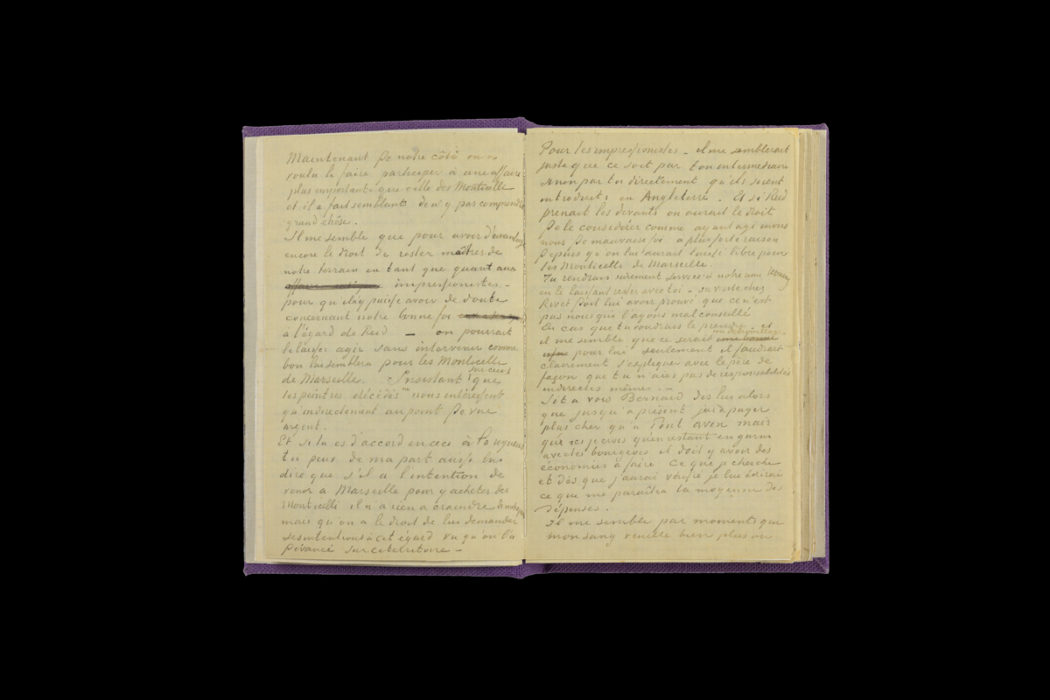 Maintenant de notre côté on a
voulu le faire participer à une affaire
plus importante que celle des Monticelli
et il a fait semblant de n'y pas comprendre
grand chose.
Il me semble que pour avoir davantage
encore le droit de rester maîtres de
notre terrain en tant que quant aux
impressionistes —
pour qu'il n'y puisse avoir de doute
concernant notre bonne foi
à l'égard de Reid — on pourrait
le laisser agir sans intervenir comme
bon lui semblera pour les Monticelli
de Marseille. Insistant sur ceci que
les peintres décédés nous intéressent
qu'indirectement au point de vue
argent.
Et si tu es d'accord en ceci
tu peux de ma part aussi lui
dire que s'il a l'intention de
venir à Marseille pour y acheter des
Monticelli il n'a rien à craindre de nous
mais qu'on a le droit de lui demander
ses intentions à cet égard vu qu'on l'a
devancé sur ce territoire —
Pour les impressionistes — il me semblerait
juste que ce soit par ton intermédiaire
sinon par toi directement qu'ils soient
introduits en Angleterre. Et si Reid
prenait les devants on aurait le droit
de le considérer comme ayant agi envers
nous de mauvaise foi à plus forte raison
depuis qu'on lui aurait laissé libre pour
les Monticelli de Marseille.
Tu rendrais sûrement service à notre ami
en le laissant rester avec toi — sa visite chez
Rivet doit lui avoir prouvé que ce n'est
pas nous qui l'avons mal conseillé
En cas que tu voudrais le prendre —
il me semble que ce serait
pour lui seulement il faudrait
clairement s'expliquer avec le père de
façon que tu n'aies pas de responsabilités
indirectes mêmes. —
Si tu vois Bernard dis lui alors
que jusqu'à présent j'ai dû payer
plus cher qu'à Pont Aven mais
que je crois qu'en restant en garni
avec les bourgeois il doit y avoir des
économies à faire ce que je cherche
et dès que j'aurai vérifié je lui écrirai
ce que me paraîtra la moyenne des
dépenses.
Il me semble par moments que
mon sang veuille bien plus ou